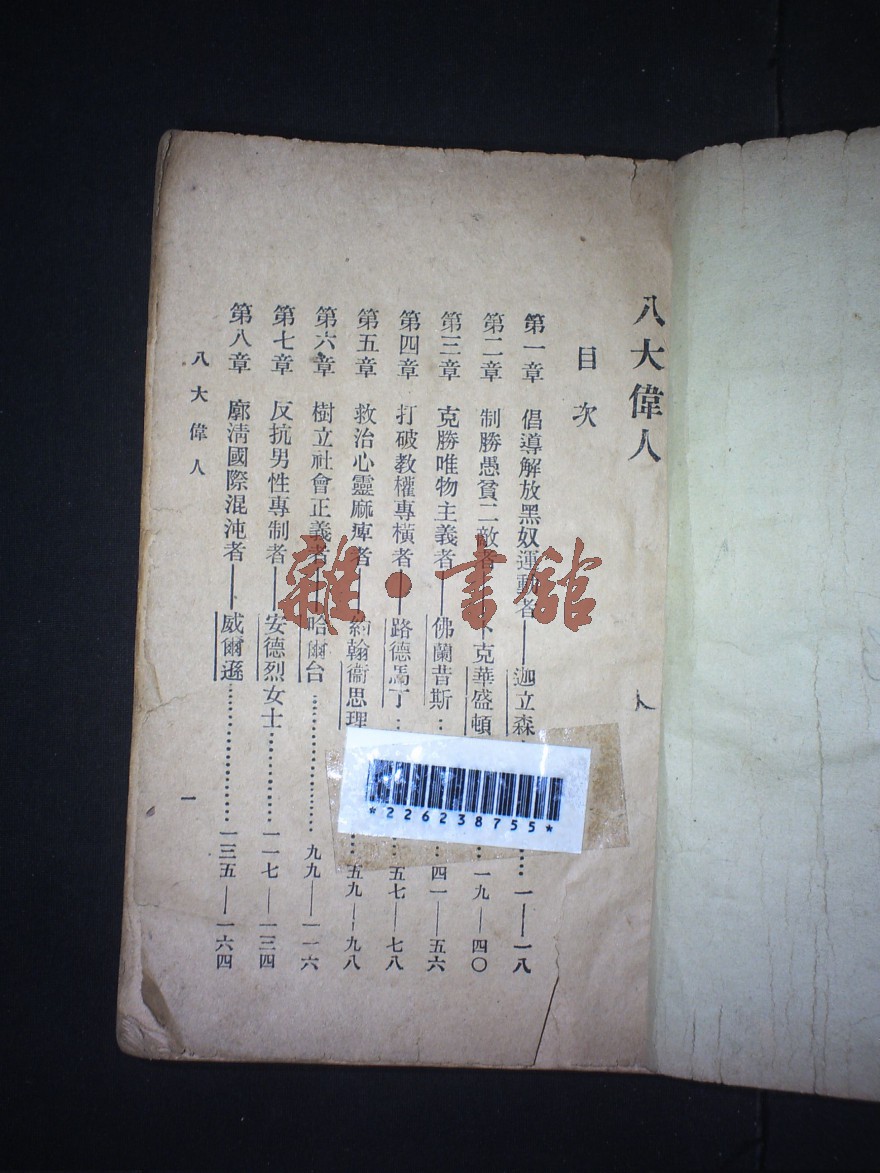 八大偉人
目次
第一章 倡導解放黑奴運動者——迦立森……一——一八
第二章 制勝愚貧二敵者 卜克華盛頓……一九——四〇
第三章 克勝唯物主義者——佛蘭昔斯……四一——五六
第四章 打破教權專橫者——路德馬丁……五七——七八
第五章 救治心靈麻痺者——約翰衞思理……五九——九八
第六章 樹立社會正義者——哈爾台……九九——一一六
第七章 反抗男性專制者——安德烈女士……一一七——一三四
第八章 廓清國際混沌者——威爾遜……一三五——一六四
八大偉人
一
雜·書館
*226238755*